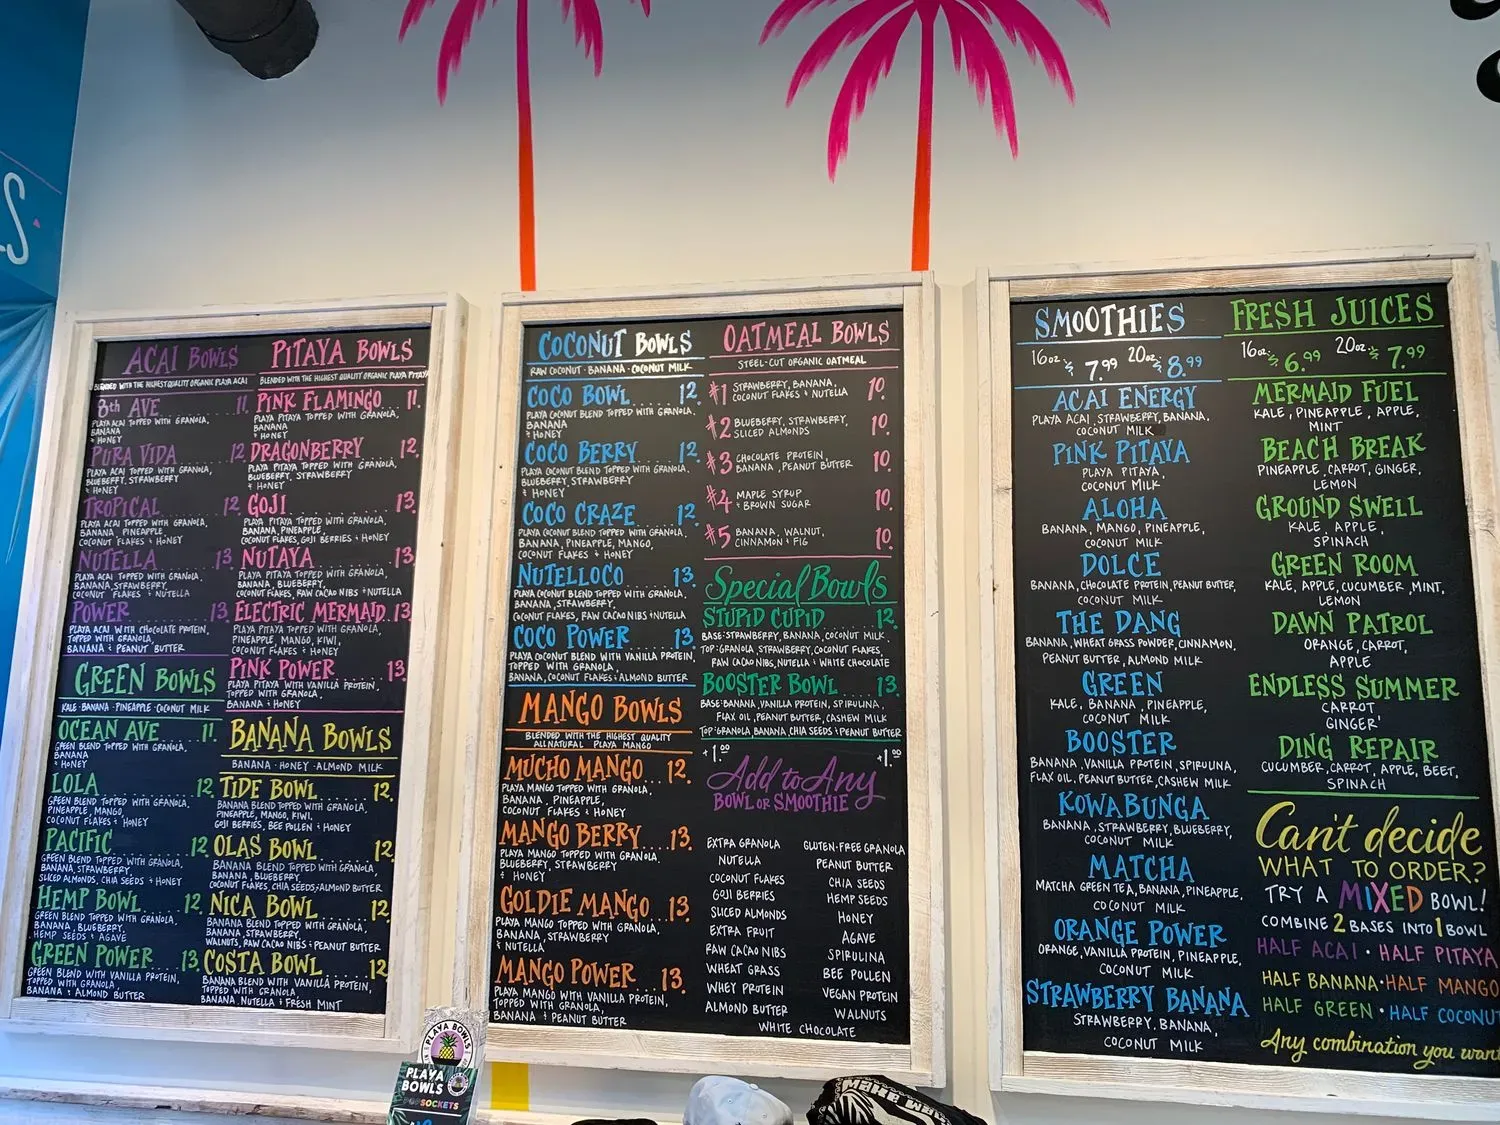 S.
ACAI BOWLS
BLENDED WITH THE HIGHEST QUALITY ORGANIC PLAYA ACAI
8th AVE 11.
PLAYA ACAI TOPPED WITH GRANOLA,
BANANA
+ HONEY
PURA VIDA 12.
PLAYA ACAI TOPPED WITH GRANOLA,
BLUEBERRY, STRAWBERRY
+ HONEY
TROPICAL 12.
PLAYA ACAI TOPPED WITH GRANOLA,
BANANA, PINEAPPLE,
COCONUT FLAKES + HONEY
NUTELLA 13.
PLAYA ACAI TOPPED WITH GRANOLA,
BANANA, STRAWBERRY,
COCONUT FLAKES + NUTELLA
POWER 13.
PLAYA ACAI WITH CHOCOLATE PROTEIN,
TOPPED WITH GRANOLA,
BANANA + PEANUT BUTTER
GREEN BOWLS
KALE · BANANA · PINEAPPLE · COCONUT MILK
OCEAN AVE 11.
GREEN BLEND TOPPED WITH GRANOLA,
BANANA
+ HONEY
LOLA 12.
GREEN BLEND TOPPED WITH GRANOLA,
PINEAPPLE, MANGO,
COCONUT FLAKES + HONEY
PACIFIC 12.
GREEN BLEND TOPPED WITH GRANOLA,
BANANA, STRAWBERRY,
SLICED ALMONDS, CHIA SEEDS + HONEY
HEMP BOWL 12.
GREEN BLEND TOPPED WITH GRANOLA,
BANANA, BLUEBERRY,
HEMP SEEDS + AGAVE
GREEN POWER 13.
GREEN BLEND WITH VANILLA PROTEIN,
TOPPED WITH GRANOLA,
BANANA + ALMOND BUTTER
PITAYA BOWLS
BLENDED WITH THE HIGHEST QUALITY ORGANIC PLAYA PITAYA
PINK FLAMINGO 11.
PLAYA PITAYA TOPPED WITH GRANOLA,
BANANA
+ HONEY
DRAGONBERRY 12.
PLAYA PITAYA TOPPED WITH GRANOLA,
BLUEBERRY, STRAWBERRY
+ HONEY
GOJI 13.
PLAYA PITAYA TOPPED WITH GRANOLA,
BANANA, PINEAPPLE,
COCONUT FLAKES, GOJI BERRIES + HONEY
NUTAYA 13.
PLAYA PITAYA TOPPED WITH GRANOLA,
BANANA, BLUEBERRY,
COCONUT FLAKES, RAW CACAO NIBS + NUTELLA
ELECTRIC MERMAID 13
PLAYA PITAYA TOPPED WITH GRANOLA,
PINEAPPLE, MANGO, KIWI,
COCONUT FLAKES + HONEY
PINK POWER 13.
PLAYA PITAYA WITH VANILLA PROTEIN,
TOPPED WITH GRANOLA,
BANANA + HONEY
BANANA BOWLS
BANANA · HONEY · ALMOND MILK
TIDE BOWL 12.
BANANA BLEND TOPPED WITH GRANOLA,
PINEAPPLE, MANGO, KIWI,
GOJI BERRIES, BEE POLLEN + HONEY
OLAS BOWL 12.
BANANA BLEND TOPPED WITH GRANOLA,
BANANA, BLUEBERRY,
COCONUT FLAKES, CHIA SEEDS + ALMOND BUTTER
NICA BOWL 12.
BANANA BLEND TOPPED WITH GRANOLA,
BANANA, STRAWBERRY,
WALNUTS, RAW CACAO NIBS + PEANUT BUTTER
COSTA BOWL 12
BANANA BLEND WITH VANILLA PROTEIN,
TOPPED WITH GRANOLA,
BANANA, NUTELLA + FRESH MINT
COCONUT BOWLS
RAW COCONUT · BANANA · COCONUT MILK
COCO BOWL 12.
PLAYA COCONUT BLEND TOPPED WITH GRANOLA,
BANANA
+ HONEY
COCO BERRY 12.
PLAYA COCONUT BLEND TOPPED WITH GRANOLA,
BLUEBERRY, STRAWBERRY
+ HONEY
COCO CRAZE 12.
PLAYA COCONUT BLEND TOPPED WITH GRANOLA,
BANANA, PINEAPPLE, MANGO,
COCONUT FLAKES + HONEY
NUTELLOCO 13.
PLAYA COCONUT BLEND TOPPED WITH GRANOLA,
BANANA, STRAWBERRY,
COCONUT FLAKES, RAW CACAO NIBS + NUTELLA
COCO POWER 13.
PLAYA COCONUT BLEND WITH VANILLA PROTEIN,
TOPPED WITH GRANOLA,
BANANA, COCONUT FLAKES + ALMOND BUTTER
MANGO BOWLS
BLENDED WITH THE HIGHEST QUALITY
ALL NATURAL PLAYA MANGO
MUCHO MANGO 12.
PLAYA MANGO TOPPED WITH GRANOLA,
BANANA, PINEAPPLE,
COCONUT FLAKES + HONEY
MANGO BERRY 13.
PLAYA MANGO TOPPED WITH GRANOLA,
BLUEBERRY, STRAWBERRY
+ HONEY
GOLDIE MANGO 13.
PLAYA MANGO TOPPED WITH GRANOLA,
BANANA, STRAWBERRY
+ NUTELLA
MANGO POWER 13.
PLAYA MANGO WITH VANILLA PROTEIN,
TOPPED WITH GRANOLA,
BANANA + PEANUT BUTTER
OATMEAL BOWLS
STEEL-CUT ORGANIC OATMEAL
#1 STRAWBERRY, BANANA, 10.
COCONUT FLAKES + NUTELLA
#2 BLUEBERRY, STRAWBERRY, 10.
SLICED ALMONDS
#3 CHOCOLATE PROTEIN, 10.
BANANA, PEANUT BUTTER
#4 MAPLE SYRUP 10.
+ BROWN SUGAR
#5 BANANA, WALNUT, 10.
CINNAMON + FIG
Special Bowls
STUPID CUPID 12.
BASE: STRAWBERRY, BANANA, COCONUT MILK
TOP: GRANOLA, STRAWBERRY, COCONUT FLAKES,
RAW CACAO NIBS, NUTELLA + WHITE CHOCOLATE
BOOSTER BOWL 13.
BASE: BANANA, VANILLA PROTEIN, SPIRULINA,
FLAX OIL, PEANUT BUTTER, CASHEW MILK
TOP: GRANOLA, BANANA, CHIA SEEDS + PEANUT BUTTER
+1.00 +1.00
Add to Any
BOWL OR SMOOTHIE
EXTRA GRANOLA
NUTELLA
COCONUT FLAKES
GOJI BERRIES
SLICED ALMONDS
EXTRA FRUIT
RAW CACAO NIBS
WHEAT GRASS
WHEY PROTEIN
ALMOND BUTTER
GLUTEN-FREE GRANOLA
PEANUT BUTTER
CHIA SEEDS
HEMP SEEDS
HONEY
AGAVE
SPIRULINA
BEE POLLEN
VEGAN PROTEIN
WALNUTS
WHITE CHOCOLATE
SMOOTHIES
16oz. 7.99 20oz. 8.99
ACAI ENERGY
PLAYA ACAI, STRAWBERRY, BANANA,
COCONUT MILK
PINK PITAYA
PLAYA PITAYA,
COCONUT MILK
ALOHA
BANANA, MANGO, PINEAPPLE,
COCONUT MILK
DOLCE
BANANA, CHOCOLATE PROTEIN, PEANUT BUTTER,
COCONUT MILK
THE DANG
BANANA, WHEAT GRASS POWDER, CINNAMON,
PEANUT BUTTER, ALMOND MILK
GREEN
KALE, BANANA, PINEAPPLE,
COCONUT MILK
BOOSTER
BANANA, VANILLA PROTEIN, SPIRULINA,
FLAX OIL, PEANUT BUTTER, CASHEW MILK
KOWABUNGA
BANANA, STRAWBERRY, BLUEBERRY,
COCONUT MILK
MATCHA
MATCHA GREEN TEA, BANANA, PINEAPPLE,
COCONUT MILK
ORANGE POWER
ORANGE, VANILLA PROTEIN, PINEAPPLE,
COCONUT MILK
STRAWBERRY BANANA
STRAWBERRY, BANANA,
COCONUT MILK
FRESH JUICES
16oz. 6.99 20oz. 7.99
MERMAID FUEL
KALE, PINEAPPLE, APPLE,
MINT
BEACH BREAK
PINEAPPLE, CARROT, GINGER,
LEMON
GROUND SWELL
KALE, APPLE,
SPINACH
GREEN ROOM
KALE, APPLE, CUCUMBER, MINT,
LEMON
DAWN PATROL
ORANGE, CARROT,
APPLE
ENDLESS SUMMER
CARROT
GINGER
DING REPAIR
CUCUMBER, CARROT, APPLE, BEET,
SPINACH
Can't decide
WHAT TO ORDER?
TRY A MIXED BOWL!
COMBINE 2 BASES INTO 1 BOWL
HALF ACAI · HALF PITAYA
HALF BANANA · HALF MANGO
HALF GREEN · HALF COCONUT
Any combination you want
PLAYA BOWLS
PLAYA
BOWLS
POPSOCKETS